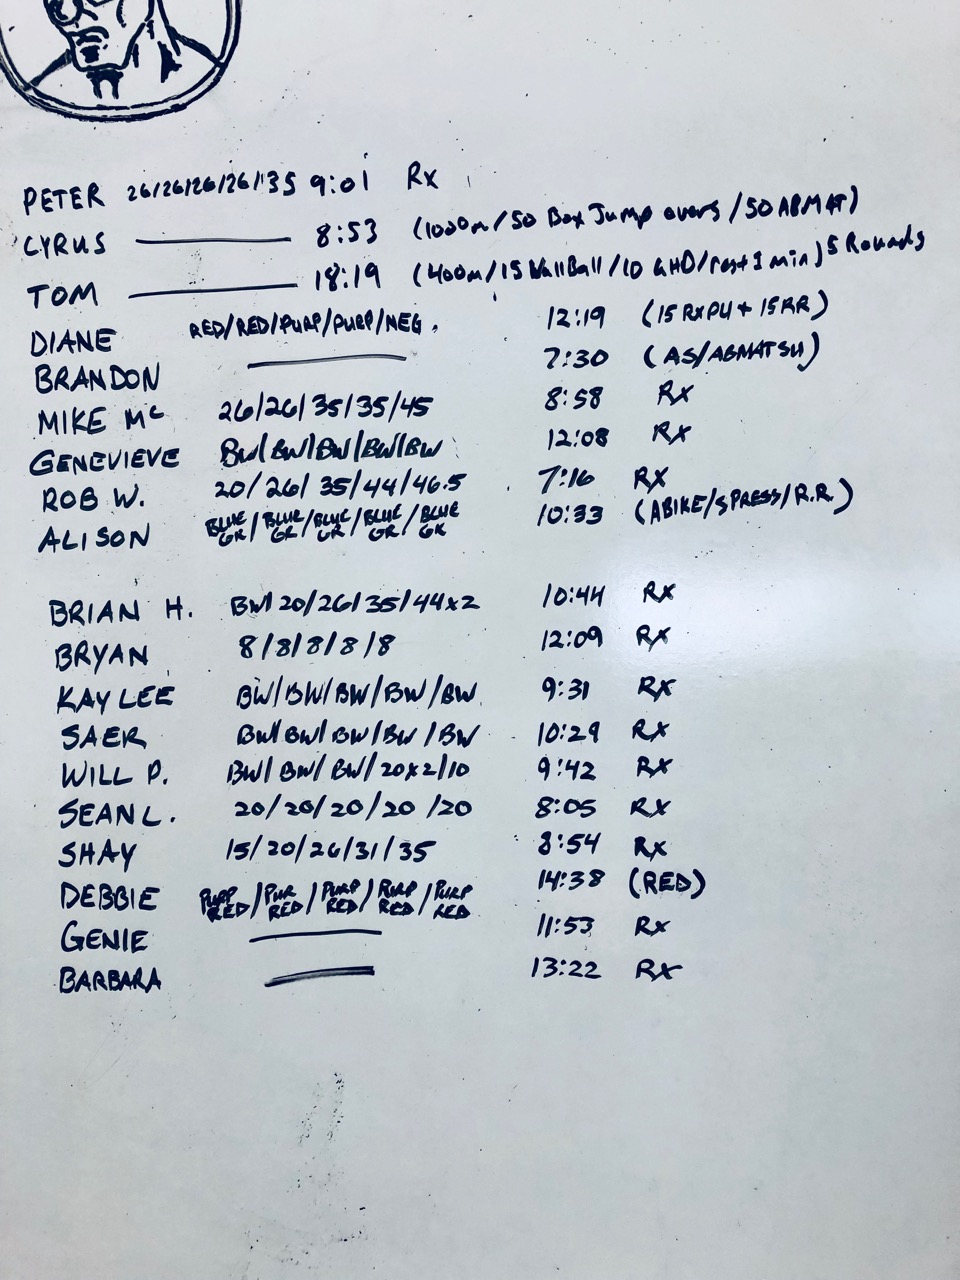 PETER 26/26/26/26/35 9:01 Rx
CYRUS 8:53 (1000m/50 Box Jump overs/50 ABMAT)
TOM 18:19 (400m/15 Wall Ball/10 GHD/rest 1 min) 5 Rounds
DIANE RED/RED/PURP/PURP/NEG. 12:19 (15 RxPU + 15RR)
BRANDON 7:30 (AS/ABMAT SU)
MIKE Mc 26/26/35/35/45 8:58 Rx
GENEVIEVE BW/BW/BW/BW/BW 12:08 Rx
ROB W. 20/26/35/44/46.5 7:16 Rx
ALISON BLUE GR/BLUE GR/BLUE GR/BLUE GR/BLUE GR 10:33 (ABIKE/S PRESS/R.R.)
BRIAN H. BW/20/26/35/44x2 10:44 Rx
BRYAN 8/8/8/8/8 12:09 Rx
KAYLEE BW/BW/BW/BW/BW 9:31 Rx
SAER BW/BW/BW/BW/BW 10:29 Rx
WILL P. BW/BW/BW/20x2/10 9:42 Rx
SEAN L. 20/20/20/20/20 8:05 Rx
SHAY 15/20/26/31/35 8:54 Rx
DEBBIE PURP RED/PUR RED/PURP RED/PURP RED/PURP RED 14:38 (RED)
GENIE 11:53 Rx
BARBARA 13:22 Rx